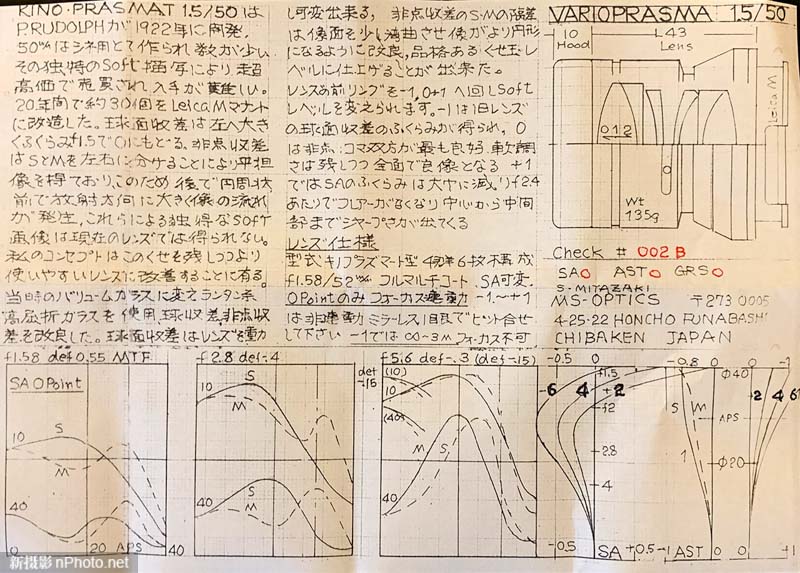 KINO-PRASMAT 1.5/50は
P.RUDOLPHが1922年に開発.
50㎜はシネ用として作られ数が少い
その独特のSoft描写により超
高価で売買され入手が難しい。
20年間で約30個をLeica Mマウント
に改造した。球面収差は左へ大き
くふくらみf1.5で0にもどる。非点収差
はSとMを左右に分けることにより平担
像を得ており、このため後で円周状
前で放射方向に大きく像の流れ
が発生, これらによる独得なSOft
画像は現在のレンズでは得られない。
私のコンセプトはこのくせを残しつつより
使いやすいレンズに改善することに有る。
当時のバリュームガラスに変えランタン系
高屈折ガラスを使用,球収差,非点収
差を改良した。球面収差はレンズを動
し可変出来る, 非点収差のS・Mの隔差
は像面を少し湾曲させ像がより円形
になるように改良,品格あるくせ玉レ
ベルに仕上げることが出来た。
レンズの前リングを-1,0+1へ回しSoft
レベルを変えられます。-1は旧レンズ
の球面収差のふくらみが得られ, 0
は非点,コマ双方が最も良好.軟調
さは残しつつ全面で良像となる +1
ではSAのふくらみは大巾に減りf2.4
あたりでフレアーがなくなり中心から中間
部までシャープさが出てくる
レンズ仕様
型式キノプラズマート型4群6枚 成
f1.58/52㎜ フルマルチコート.SA可変.
0Pointのみフォーカス連動 -1.~+1
は非連動 ミラーレス,目視でピント合せ
して下さい -1では∞-3m フォーカス不可
VARIOPRASMA 1.5/50
10 L43
Hood Lens
Leica M
0 1 2
Wt
135g
Check # 002B
SAO ASTO GRSO
S-MIYAZAKI
MS-OPTICS 〒273 0005
4-25-22 HONCHO FUNABASHI
CHIBAKEN JAPAN
f1.58 def 0.55 MTF
SA 0Point
10
S
M
40
0 20 APS 40
f2.8 def-.4
10
S
M
40
S
M
f5.6 def-.3 (def-.15)
def
-.15
(10)
10
(40)
M S
40
-0.5 0
f1.5
-6 4 +2
f2
-2.8
-4
-5.6
-0.5 SA +0.5
-0.8 0
S M
1
-1 AST 0
Φ40
APS
Φ20
0 -1
2 4 6
0 +1
新摄影 nPhoto.net